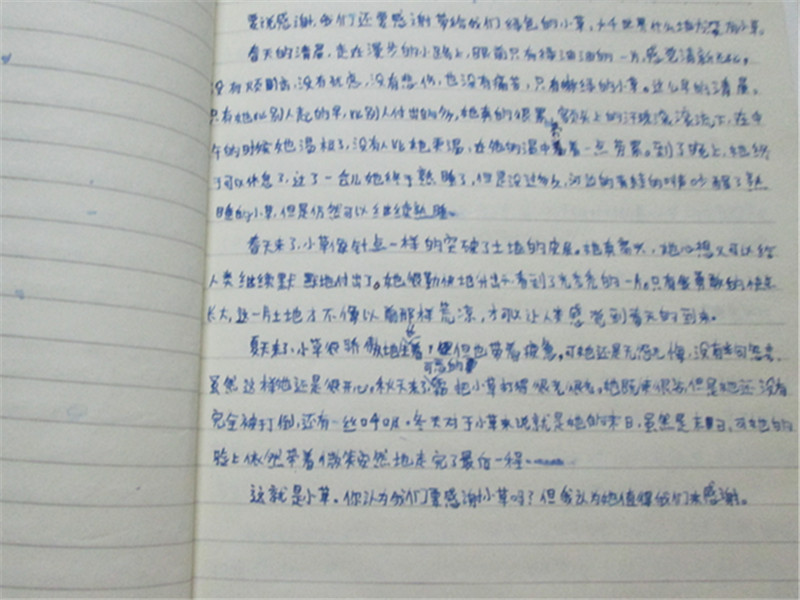 要说感谢,我们还要感谢带给我们绿色的小草,
春天的清晨,走在漫步的小路上,眼前只有绿油油的一片,感觉清新
没有烦恼,没有忧虑,没有悲伤,也没有痛苦,只有嫩绿的小草。这么早的清晨。
只有她比别人起的早,比别人付出的多,她真的很累,额头上的汗珠滚滚流下,在中
午的时候她温和了,没有人比她更温,在他的温中着一点劳累。到了晚上,她终
于可以休息了,过了一会儿她终于熟睡了,但是没过多久,河边的青蛙的叫声吵醒了熟
睡的小草,但是仍然可以继续熟睡。
春天来了,小草像针点一样的穿破了土地的皮层。她真高兴,她心想又可以给
人类继续默默地付出了。她很勤快地分出看到了光秃秃的一片。只有勇敢的快点
长大,这一片土地才不像以前那样荒凉,才可以让人类感觉到春天的到来。
夏天来了,小草很骄傲地生着,但也带着疲惫,可她还是无怨无悔,没有半句怨言,
虽然这样她还是很开心。秋天来了,可恶的霜把小草打得很光很光。她既使很伤,但是她还没有
完全被打倒,还有一丝呼吸。冬天对于小草来说就是她的末日,虽然是末日,可她的
脸上依然带着微笑安然地走完了最后一程……
这就是小草。你认为我们要感谢小草吗?但我认为她值得我们来感谢。